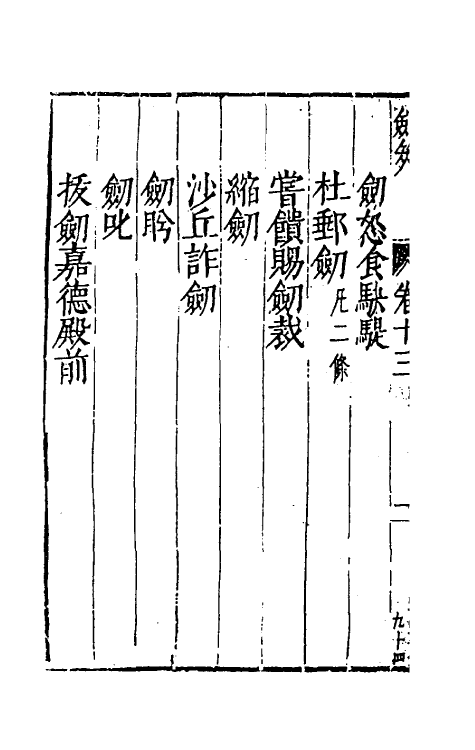 卷十三
劒怒食駃騠
杜郵劒 凡二條
嘗饋賜劒裁
縮劒
沙丘詐劒
劒盻
劒叱
扳劒嘉德殿前
二
九十四